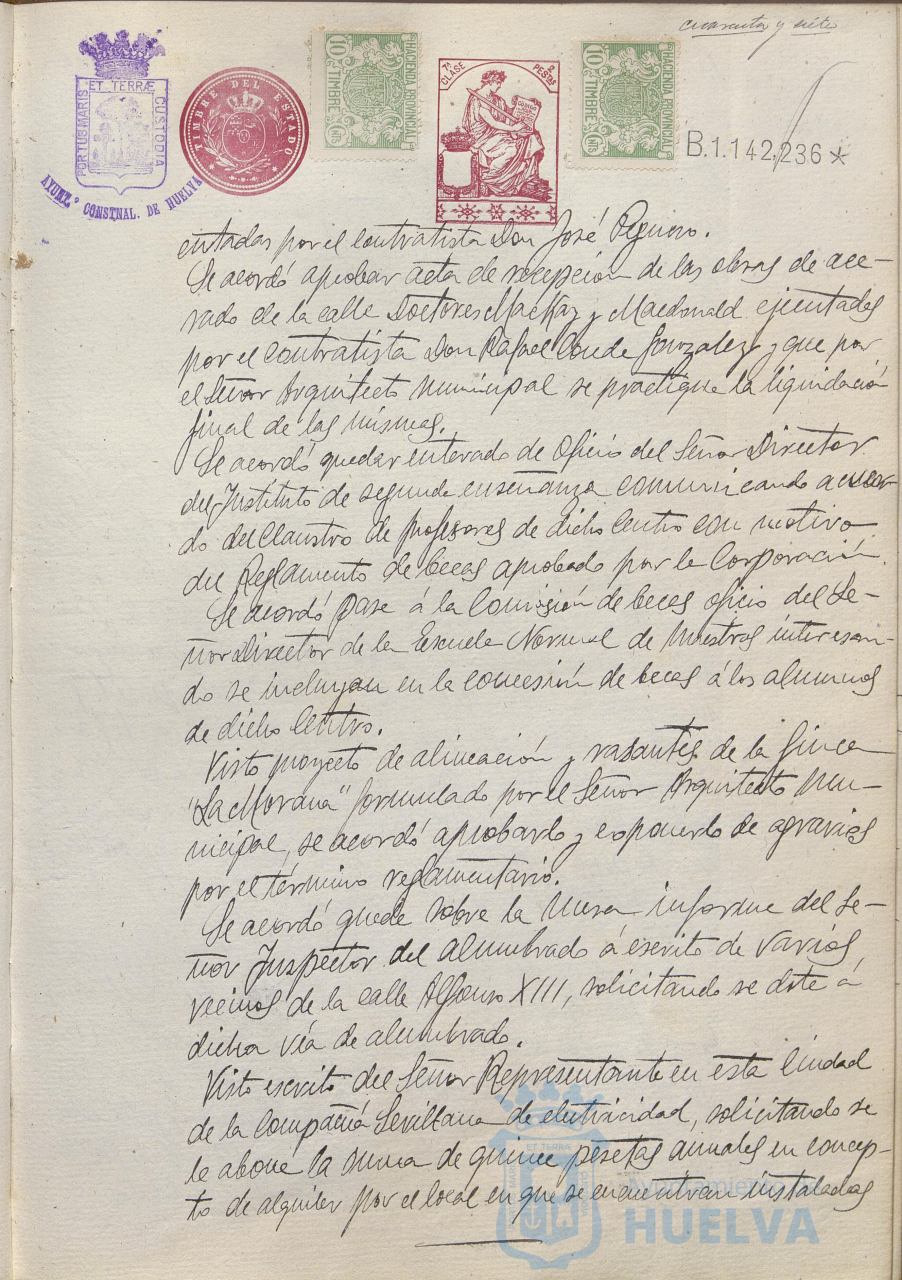 cuarenta y siete
PORTUS MARIS ET TERRÆ CUSTODIA
AYUNT.º CONSTNAL. DE HUELVA
TIMBRE DEL ESTADO
10 CTS TIMBRE HACIENDA PROVINCIAL
7ª CLASE 2 PESTAS
10 CTS TIMBRE HACIENDA PROVINCIAL
B.1.142,236 *
entadas por el contratista Don José
Se acordó aprobar acta de recepción de las obras de ace-
rado de la calle Doctores Mackay y Macdonald ejecutadas
por el contratista Don Rafael Conde Gonzalez y que por
el Señor Arquitecto municipal se practique la liquidación
final de las mismas.
Se acordó quedar enterado de Oficio del Señor Director
del Instituto de segunda enseñanza comunicando acuer-
do del Claustro de profesores de dicho Centro con motivo
del Reglamento de becas aprobado por la Corporación.
Se acordó pase á la Comisión de becas oficio del Se-
ñor Director de la Escuela Normal de Maestros interesan-
do se incluyan en la concesión de becas á los alumnos
de dicho Centro.
Visto proyecto de alineación y rasantes de la finca
"La Morana" formulado por el Señor Arquitecto Mu-
nicipal, se acordó aprobarlo y exponerlo de agravios
por el término reglamentario.
Se acordó quede sobre la Mesa informe del Se-
ñor Inspector del alumbrado á escrito de varios
vecinos de la calle Alfonso XIII, solicitando se dote á
dicha vía de alumbrado.
Visto escrito del Señor Representante en esta Ciudad
de la Compañia Sevillana de electricidad, solicitando se
le abone la suma de quince pesetas anuales en concep-
to de alquiler por el local en que se encuentran instaladas
Ayuntamiento de
HUELVA